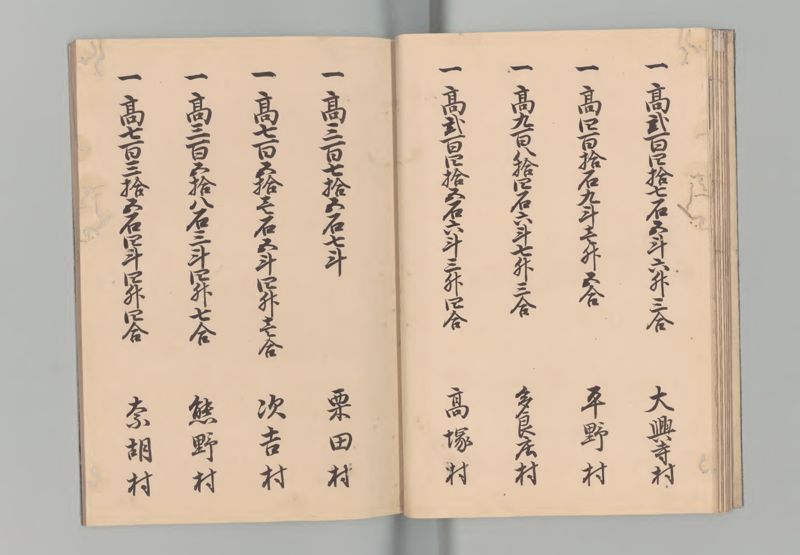 一高弐百四拾七石五斗六升三合 大興寺村
一高四百拾石九斗壱升五合 平野村
一高九百八拾四石六斗七升三合 多良庄村
一高弐百四拾五石六斗三升四合 高塚村
一高三百七拾五石七斗 栗田村
一高七百五拾壱石五斗四升壱合 次吉村
一高三百五拾八石三斗四升七合 熊野村
一高七百三拾五石四斗四升四合 奈胡村